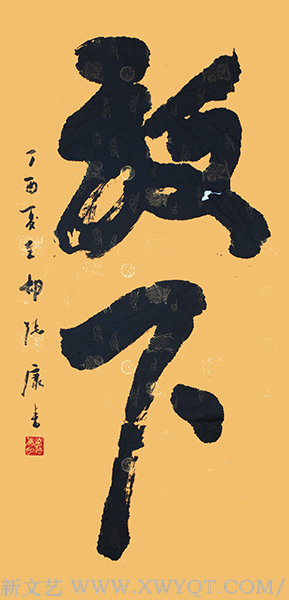 放下
丁酉夏康书
新文艺 WWW.XWYQT.COM/